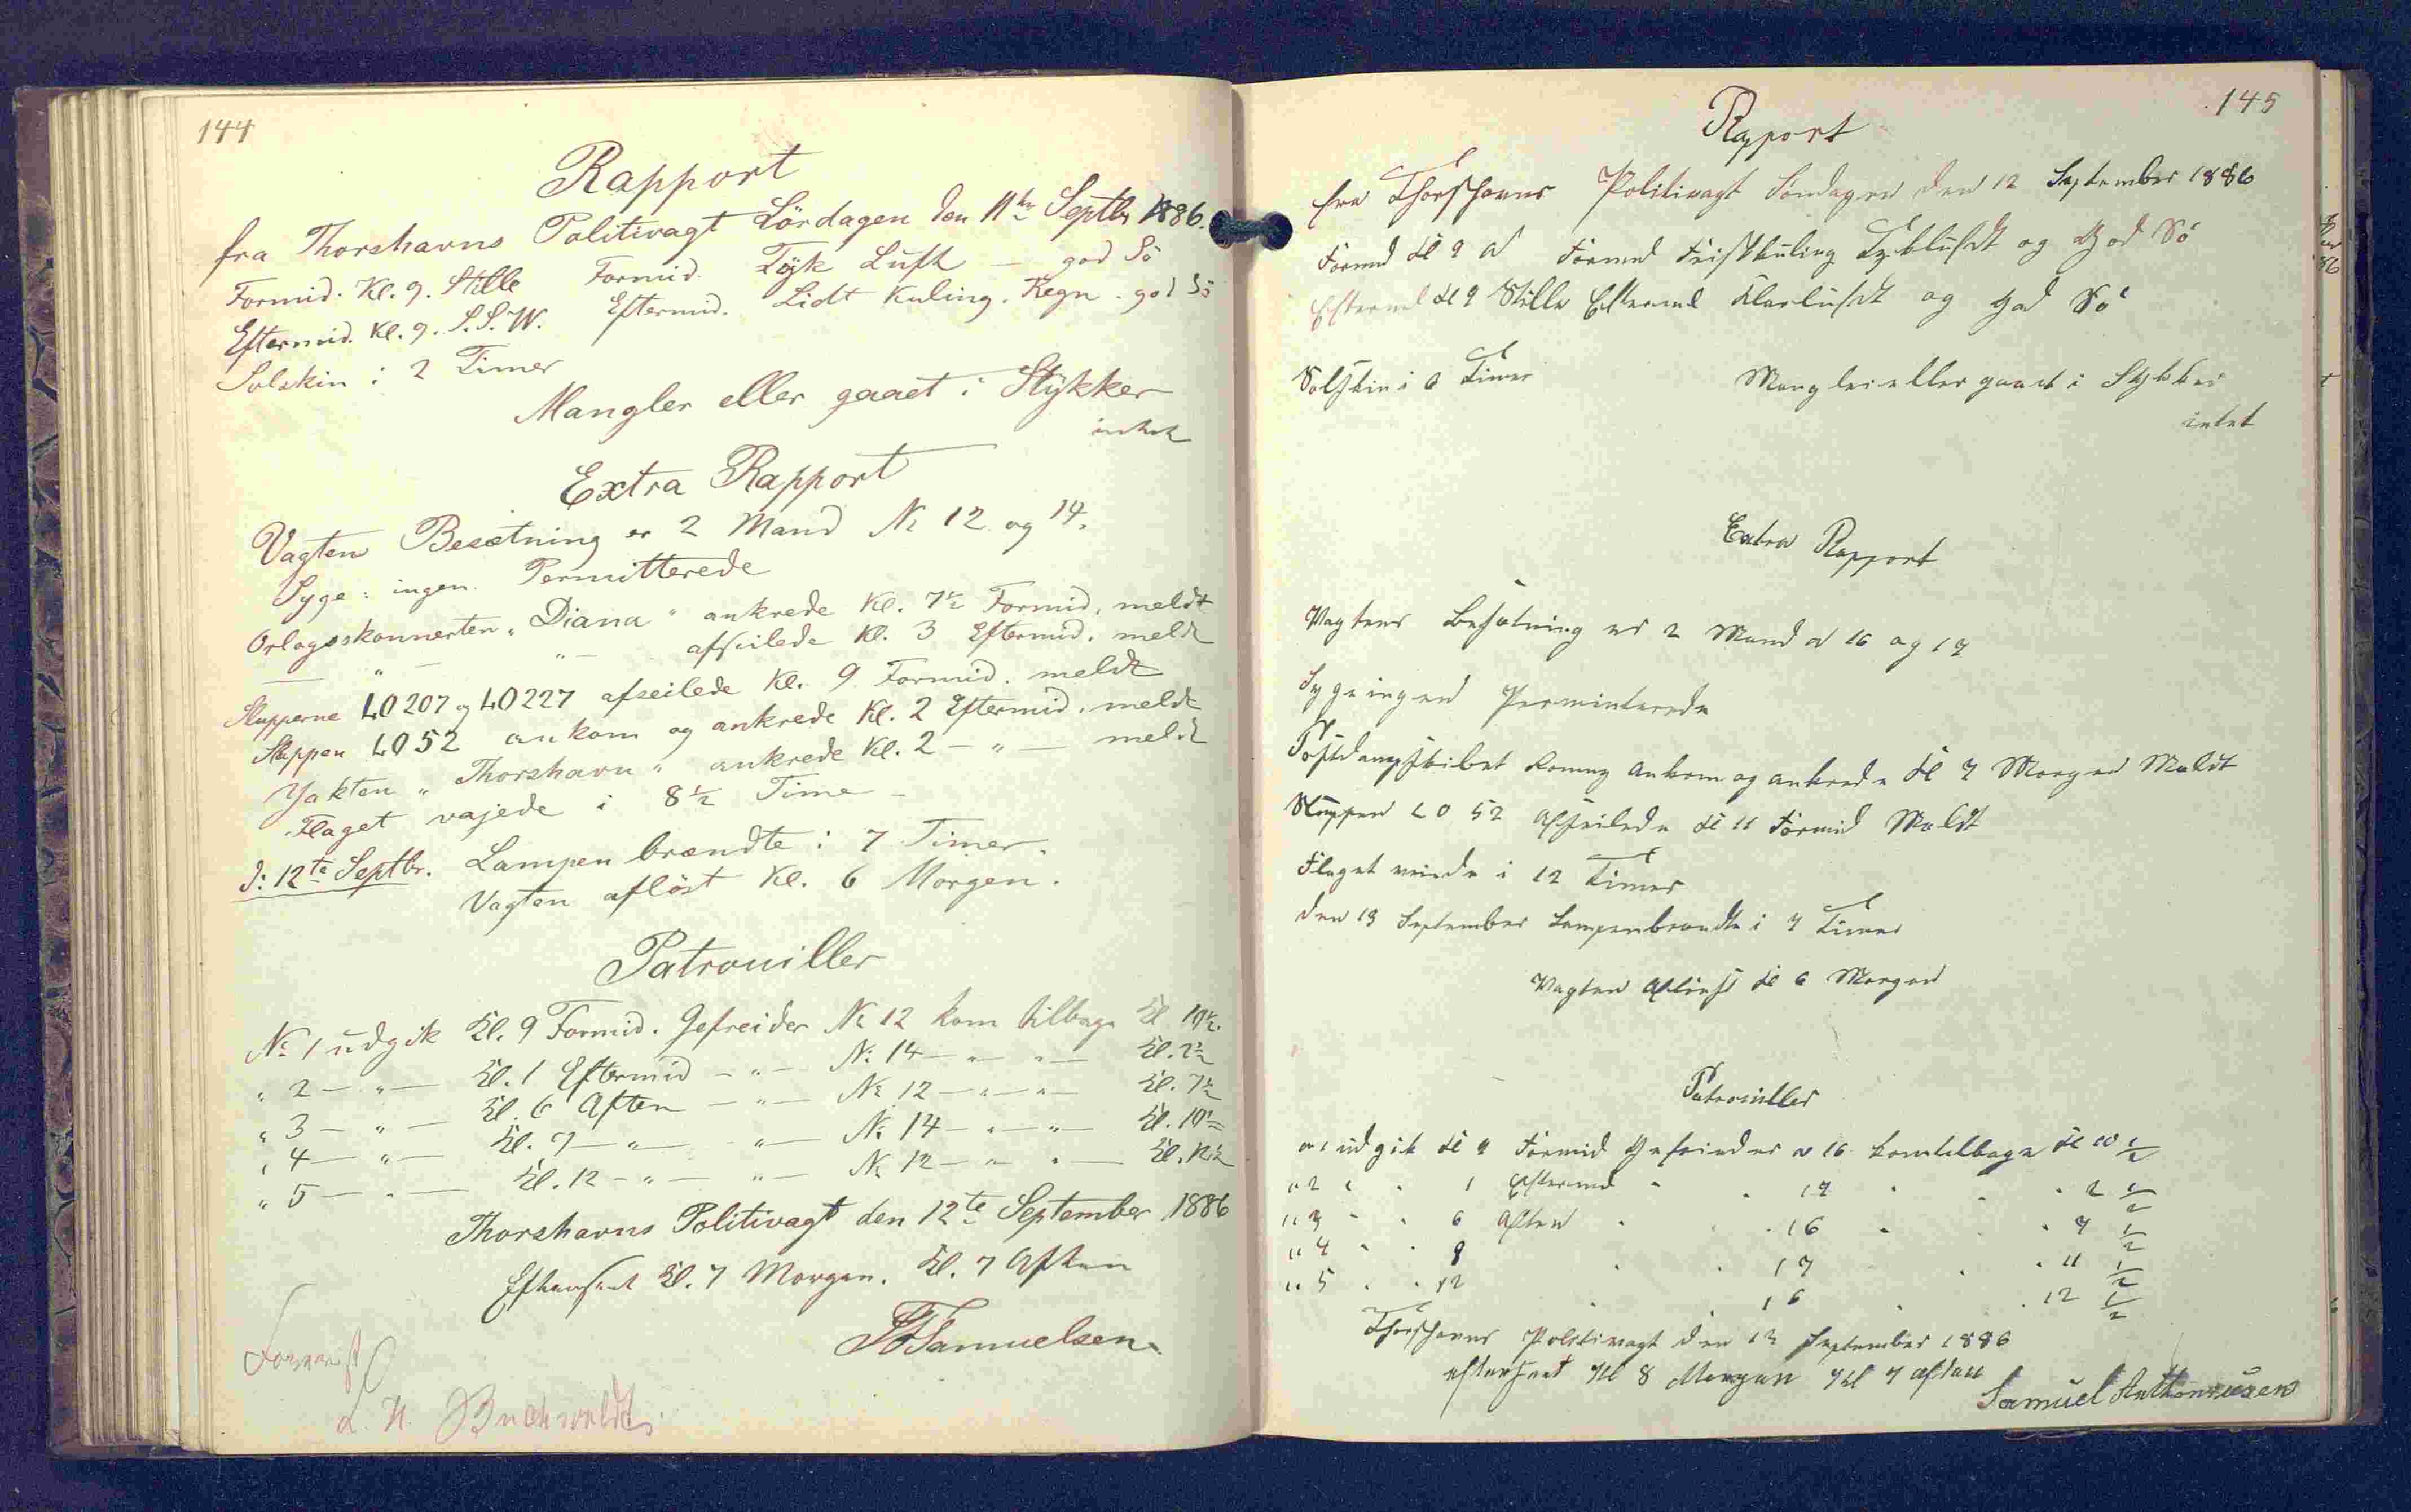 144
Rapport
fra Thorshavns Politivagt Lördagen den 11te Septbr 1886.
Formid. Kl. 9. Stille Formid. Tyk Luft — god Sö
Eftermid. Kl. 9. S.S.W. Eftermid. Lidt Kuling. Regn. god Sö
Solskin i 2 Timer
Mangler eller gaaet i Stykker
intet
Extra Rapport
Vagten Besætning er 2 Mand No 12 og 14.
Syge: ingen Permitterede
Orlogsskonnerten „Diana“ ankrede Kl. 7½ Formid. meldt
— „ — „ — afseilede Kl. 3 Eftermid. meldt
Slupperne LO207 og LO227 afseilede Kl. 9 Formid. meldt
Sluppen LO52 ankom og ankrede Kl. 2 Eftermid. meldt
Yakten „Thorshavn“ ankrede Kl. 2 — „ — meldt
Flaget vajede i 8½ Time
d: 12te Septbr. Lampen brændte i 7 Timer.
Vagten aflöst Kl. 6 Morgen.
Patrouiller
No 1 udgik Kl. 9 Formid. Gefreider No 12 kom tilbage Kl. 10½.
„ 2 — „ — Kl. 1 Eftermid — „ — No 14 — „ — „ — Kl. 2½
„ 3 — „ — Kl. 6 Aften — „ — No 12 — „ — „ — Kl. 7½
„ 4 — „ — Kl. 9 — „ — „ — No 14 — „ — „ — Kl. 10½
„ 5 — „ — Kl. 12 — „ — „ — No 12 — „ — „ — Kl. 12½
Thorshavns Politivagt den 12te September 1886
Efterseet Kl. 7 Morgen. Kl. 7 Aften
Samuelsen
L. N. Buchwaldt
145
Rapport
fra Thorshavns Politivagt Söndagen den 12 September 1886
Formd Kl 9 Formd Friskkuling Tykluft og God Sö
Eftermd Kl 9 Stille Eftermd Klarluft og God Sö
Solskin i 6 Timer Mangler eller gaaet i Stykker
intet
Extra Rapport
Vagtens Besætning er 2 Mand No 16 og 17
Syge ingen Perminterede
Postdampskibet Romny Ankom og ankrede Kl 7 Morgen Meldt
Sluppen LO 52 Afseilede Kl 11 Formid Meldt
Flaget veiede i 12 Timer
den 13 September Lampen brændte i 7 Timer
Vagten Aflöst Kl 6 Morgen
Patrouiller
No 1 udgik Kl 9 Formid Gefreider No 16 kom tilbage Kl 10 ½
„ 2 „ „ 1 Eftermd „ „ 17 „ „ „ 2 ½
„ 3 „ „ 6 Aften „ „ 16 „ „ „ 7 ½
„ 4 „ „ 9 „ „ 17 „ „ 11 ½
„ 5 „ „ 12 „ „ 16 „ „ 12 ½
Thorshavns Politivagt den 12 September 1886
efterseet Kl 8 Morgen Kl 7 Aften
Samuel Anthoniusen